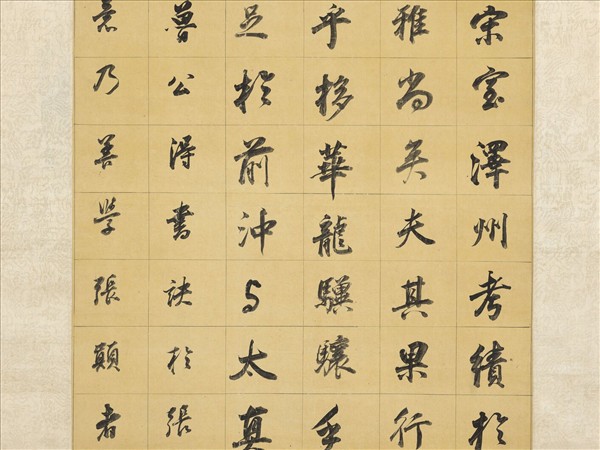 宗室澤州考績於
雅尚矣夫其果行
乎移華龍驥驤
足於前沖与太真
魯公得書訣於張
意乃善學張顛者